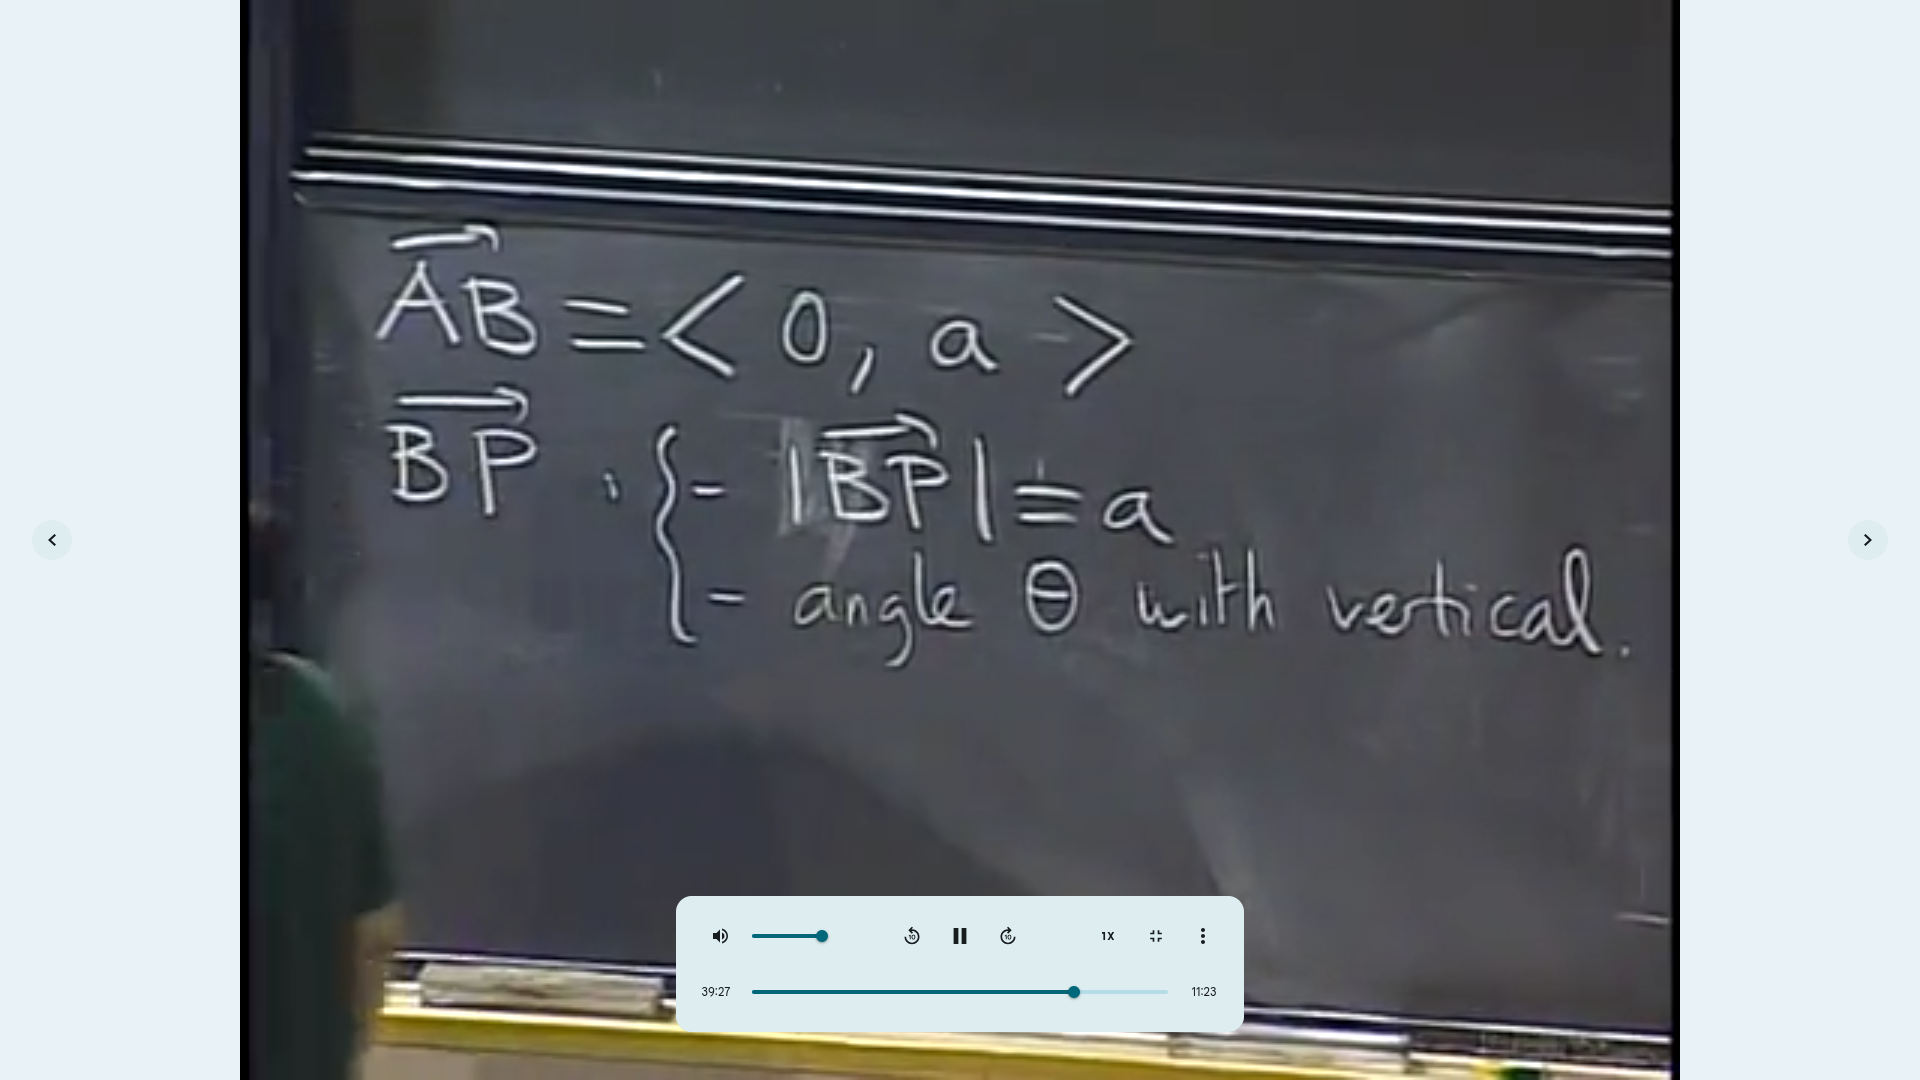 AB = < 0, a >
BP : { - |BP| = a
- angle θ with vertical.
1X
39:27
11:23